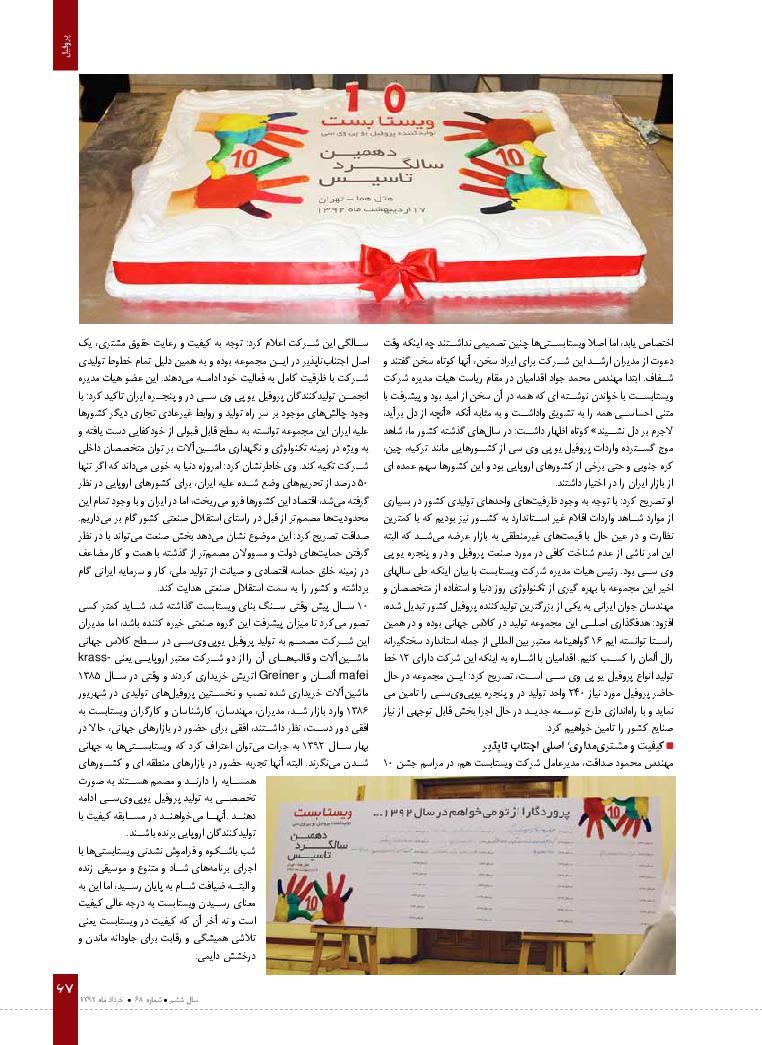 پروفیل
10
ویستابست
تولیدکننده پروفیل یو پی وی سی
10
10
دهمین
سالگرد
تاسیس
هتل هما - تهران
۱۷ اردیبهشت ماه ۱۳۹۲
اختصاص یابد، اما اصلا ویستابستی‌ها چنین تصمیمی نداشتند چه اینکه وقت
دعوت از مدیران ارشد این شرکت برای ایراد سخن، آنها کوتاه سخن گفتند و
شفاف. ابتدا مهندس محمد جواد اقدامیان در مقام ریاست هیات مدیره شرکت
ویستابست با خواندن نوشته ای که همه در آن سخن از امید بود و پیشرفت با
متنی احساسی همه را به تشویق واداشت و به مثابه آنکه «آنچه از دل برآید،
لاجرم بر دل نشیند» کوتاه اظهار داشت: در سال‌های گذشته کشور ما، شاهد
موج گسترده واردات پروفیل یو پی وی سی از کشورهایی مانند ترکیه، چین،
کره جنوبی و حتی برخی از کشورهای اروپایی بود و این کشورها سهم عمده ای
از بازار ایران را در اختیار داشتند.
او تصریح کرد: با توجه به وجود ظرفیت‌های واحدهای تولیدی کشور در بسیاری
از موارد شاهد واردات اقلام غیر استاندارد به کشور نیز بودیم که با کمترین
نظارت و در عین حال با قیمت‌های غیرمنطقی به بازار عرضه می‌شد که البته
این امر ناشی از عدم شناخت کافی در مورد صنعت پروفیل و در و پنجره یو پی
وی سی بود. رئیس هیات مدیره شرکت ویستابست با بیان اینکه طی سالهای
اخیر این مجموعه با بهره گیری از تکنولوژی روز دنیا و استفاده از متخصصان و
مهندسان جوان ایرانی به یکی از بزرگترین تولیدکننده پروفیل کشور تبدیل شده،
افزود: هدفگذاری اصلی این مجموعه تولید در کلاس جهانی بوده و در همین
راستا توانسته ایم ۱۶ گواهینامه معتبر بین المللی از جمله استاندارد سختگیرانه
رال آلمان را کسب کنیم. اقدامیان با اشاره به اینکه این شرکت دارای ۱۲ خط
تولید انواع پروفیل یو پی وی سی است، تصریح کرد: این مجموعه در حال
حاضر پروفیل مورد نیاز ۲۴۰ واحد تولید در و پنجره یوپی‌وی‌سی را تامین می
نماید و با راه‌اندازی طرح توسعه جدید در حال اجرا بخش قابل توجهی از نیاز
صنایع کشور را تامین خواهیم کرد.
■ کیفیت و مشتری‌مداری؛ اصلی اجتناب ناپذیر
مهندس محمود صداقت، مدیرعامل شرکت ویستابست هم، در مراسم جشن ۱۰
سالگی این شرکت اعلام کرد: توجه به کیفیت و رعایت حقوق مشتری، یک
اصل اجتناب‌ناپذیر در این مجموعه بوده و به همین دلیل تمام خطوط تولیدی
شرکت با ظرفیت کامل به فعالیت خود ادامه می‌دهند. این عضو هیات مدیره
انجمن تولیدکنندگان پروفیل یو پی وی سی در و پنجره ایران تاکید کرد: با
وجود چالش‌های موجود بر سر راه تولید و روابط غیرعادی تجاری دیگر کشورها
علیه ایران این مجموعه توانسته به سطح قابل قبولی از خودکفایی دست یافته و
به ویژه در زمینه تکنولوژی و نگهداری ماشین‌آلات بر توان متخصصان داخلی
شرکت تکیه کند. وی خاطرنشان کرد: امروزه دنیا به خوبی می‌داند که اگر تنها
۵۰ درصد از تحریم‌های وضع شده علیه ایران، برای کشورهای اروپایی در نظر
گرفته می‌شد، اقتصاد این کشورها فرو می‌ریخت، اما در ایران و با وجود تمام این
محدودیت‌ها مصمم‌تر از قبل در راستای استقلال صنعتی کشور گام بر می‌داریم.
صداقت تصریح کرد: این موضوع نشان می‌دهد بخش صنعت می‌تواند با در نظر
گرفتن حمایت‌های دولت و مسوولان مصمم‌تر از گذشته با همت و کار مضاعف
در زمینه خلق حماسه اقتصادی و صیانت از تولید ملی، کار و سرمایه ایرانی گام
برداشته و کشور را به سمت استقلال صنعتی هدایت کند.
۱۰ سال پیش وقتی سنگ بنای ویستابست گذاشته شد، شاید کمتر کسی
تصور می‌کرد تا میزان پیشرفت این گروه صنعتی خیره کننده باشد، اما مدیران
این شرکت مصمم به تولید پروفیل یوپی‌وی‌سی در سطح کلاس جهانی
ماشین‌آلات و قالب‌های آن را از دو شرکت معتبر اروپایی یعنی krass-
mafei آلمان و Greiner اتریش خریداری کردند و وقتی در سال ۱۳۸۵
ماشین‌آلات خریداری شده نصب و نخستین پروفیل‌های تولیدی در شهریور
۱۳۸۶ وارد بازار شد، مدیران، مهندسان، کارشناسان و کارگران ویستابست به
افقی دور دست، نظر داشتند، افقی برای حضور در بازارهای جهانی، حالا در
بهار سال ۱۳۹۲ به جرات می‌توان اعتراف کرد که ویستابستی‌ها به جهانی
شدن می‌نگرند. البته آنها تجربه حضور در بازارهای منطقه ای و کشورهای
همسایه را دارند و مصمم هستند به صورت
تخصصی به تولید پروفیل یوپی‌وی‌سی ادامه
دهند. آنها می‌خواهند در مسابقه کیفیت با
تولیدکنندگان اروپایی برنده باشند.
شب باشکوه و فراموش نشدنی ویستابستی‌ها با
اجرای برنامه‌های شاد و متنوع و موسیقی زنده
و البته ضیافت شام به پایان رسید، اما این به
معنای رسیدن ویستابست به درجه عالی کیفیت
است و نه آخر آن که کیفیت در ویستابست یعنی
تلاشی همیشگی و رقابت برای جاودانه ماندن و
درخشش دایمی.
پروردگارا از تو می‌خواهم در سال ۱۳۹۲...
10
ویستابست
تولیدکننده پروفیل یو پی وی سی
دهمین
سالگرد
تاسیس
10
۶۷
سال ششم ● شماره ۶۸ ● خرداد ماه ۱۳۹۲